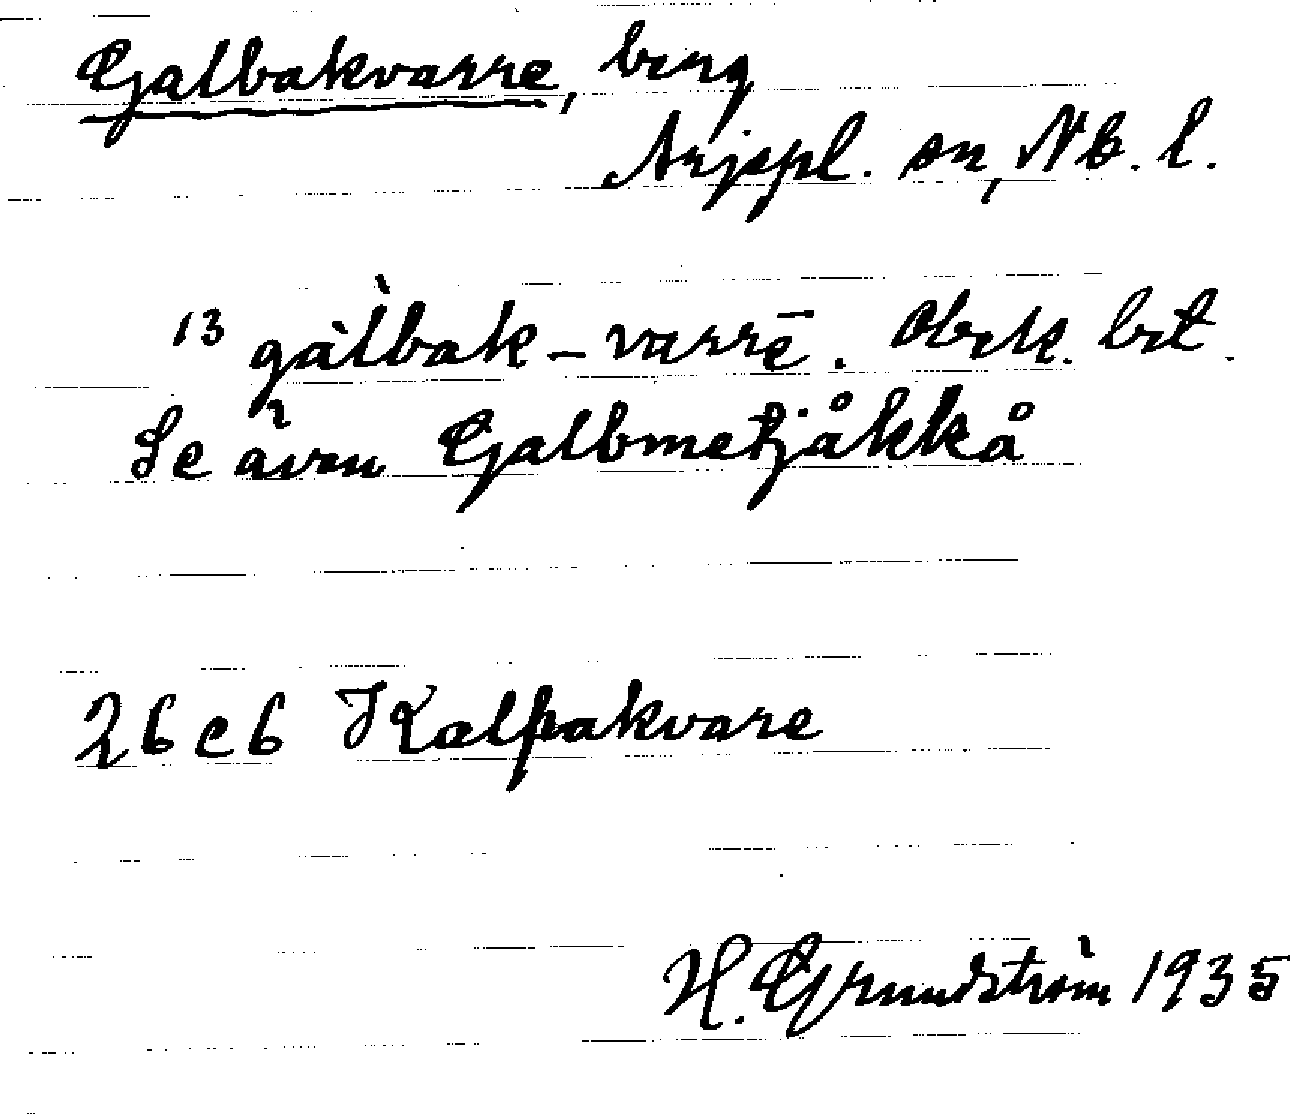 Galbakvarre, berg
Arjepl. sn, Nb. l.
13 gàlbak-varrē. Obek. bet.
Se även Galbmetjåkkå
26 c 6 Kalpakvare
H. Grundström 1935